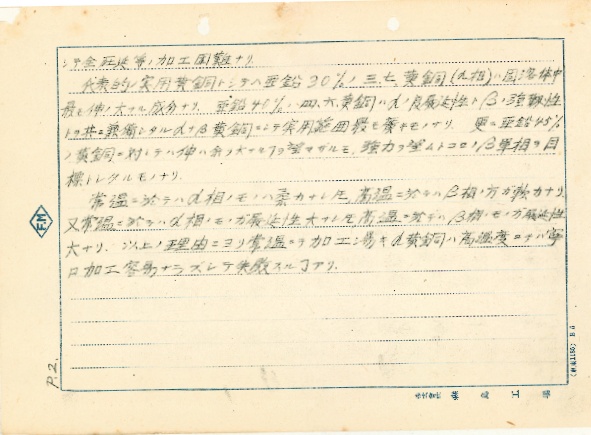 シテ全証此等ノ加工困難ナリ.
代表的ノ実用黄銅トシテハ亜鉛30%ノ三七黄銅(α相)ハ固溶体中
最モ伸ノ大ナル成分ナリ. 亜鉛40%ノ四,六黄銅ハαノ展延性トβノ強靭性
トヲ共ニ兼備シタルα+β黄銅ニシテ実用範囲最モ廣キモノナリ. 更ニ亜鉛45%
ノ黄銅ニ対シテハ伸ハ余リ大ナルヲ望マザルモ,強力ヲ望ムトコロノβ単相ヲ目
標トシタルモノナリ.
常温ニ於テハα相ノモノハ柔カナレ𪜈高温ニ於テハβ相ノ方ガ軟カナリ.
又常温ニ於テハα相ノモノガ展延性大ナレ𪜈高温ニ於テハβ相ノモノガ展延性
大ナリ. 以上ノ理由ニヨリ常温ニテ加工シ易キα黄銅ハ高温度ニテハ寧
ロ加工容易ナラズシテ失敗スルヿアリ.
P.2.
F.M
B5
株式会社 島 工 場